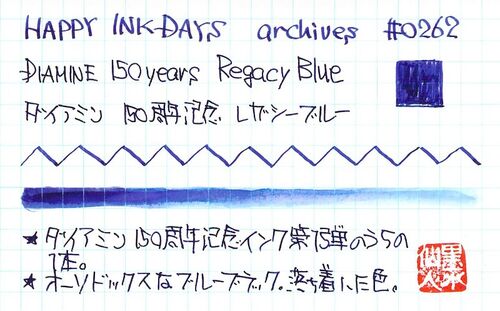 HAPPY INK-DAYS archives #0262
DIAMINE 150years Regacy Blue
ダイアミン 150周年記念 レガシーブルー
★ダイアミン150周年記念インク第15弾のうちの
1本。
★オーソドックスなブルーブラック。落ち着いた色。